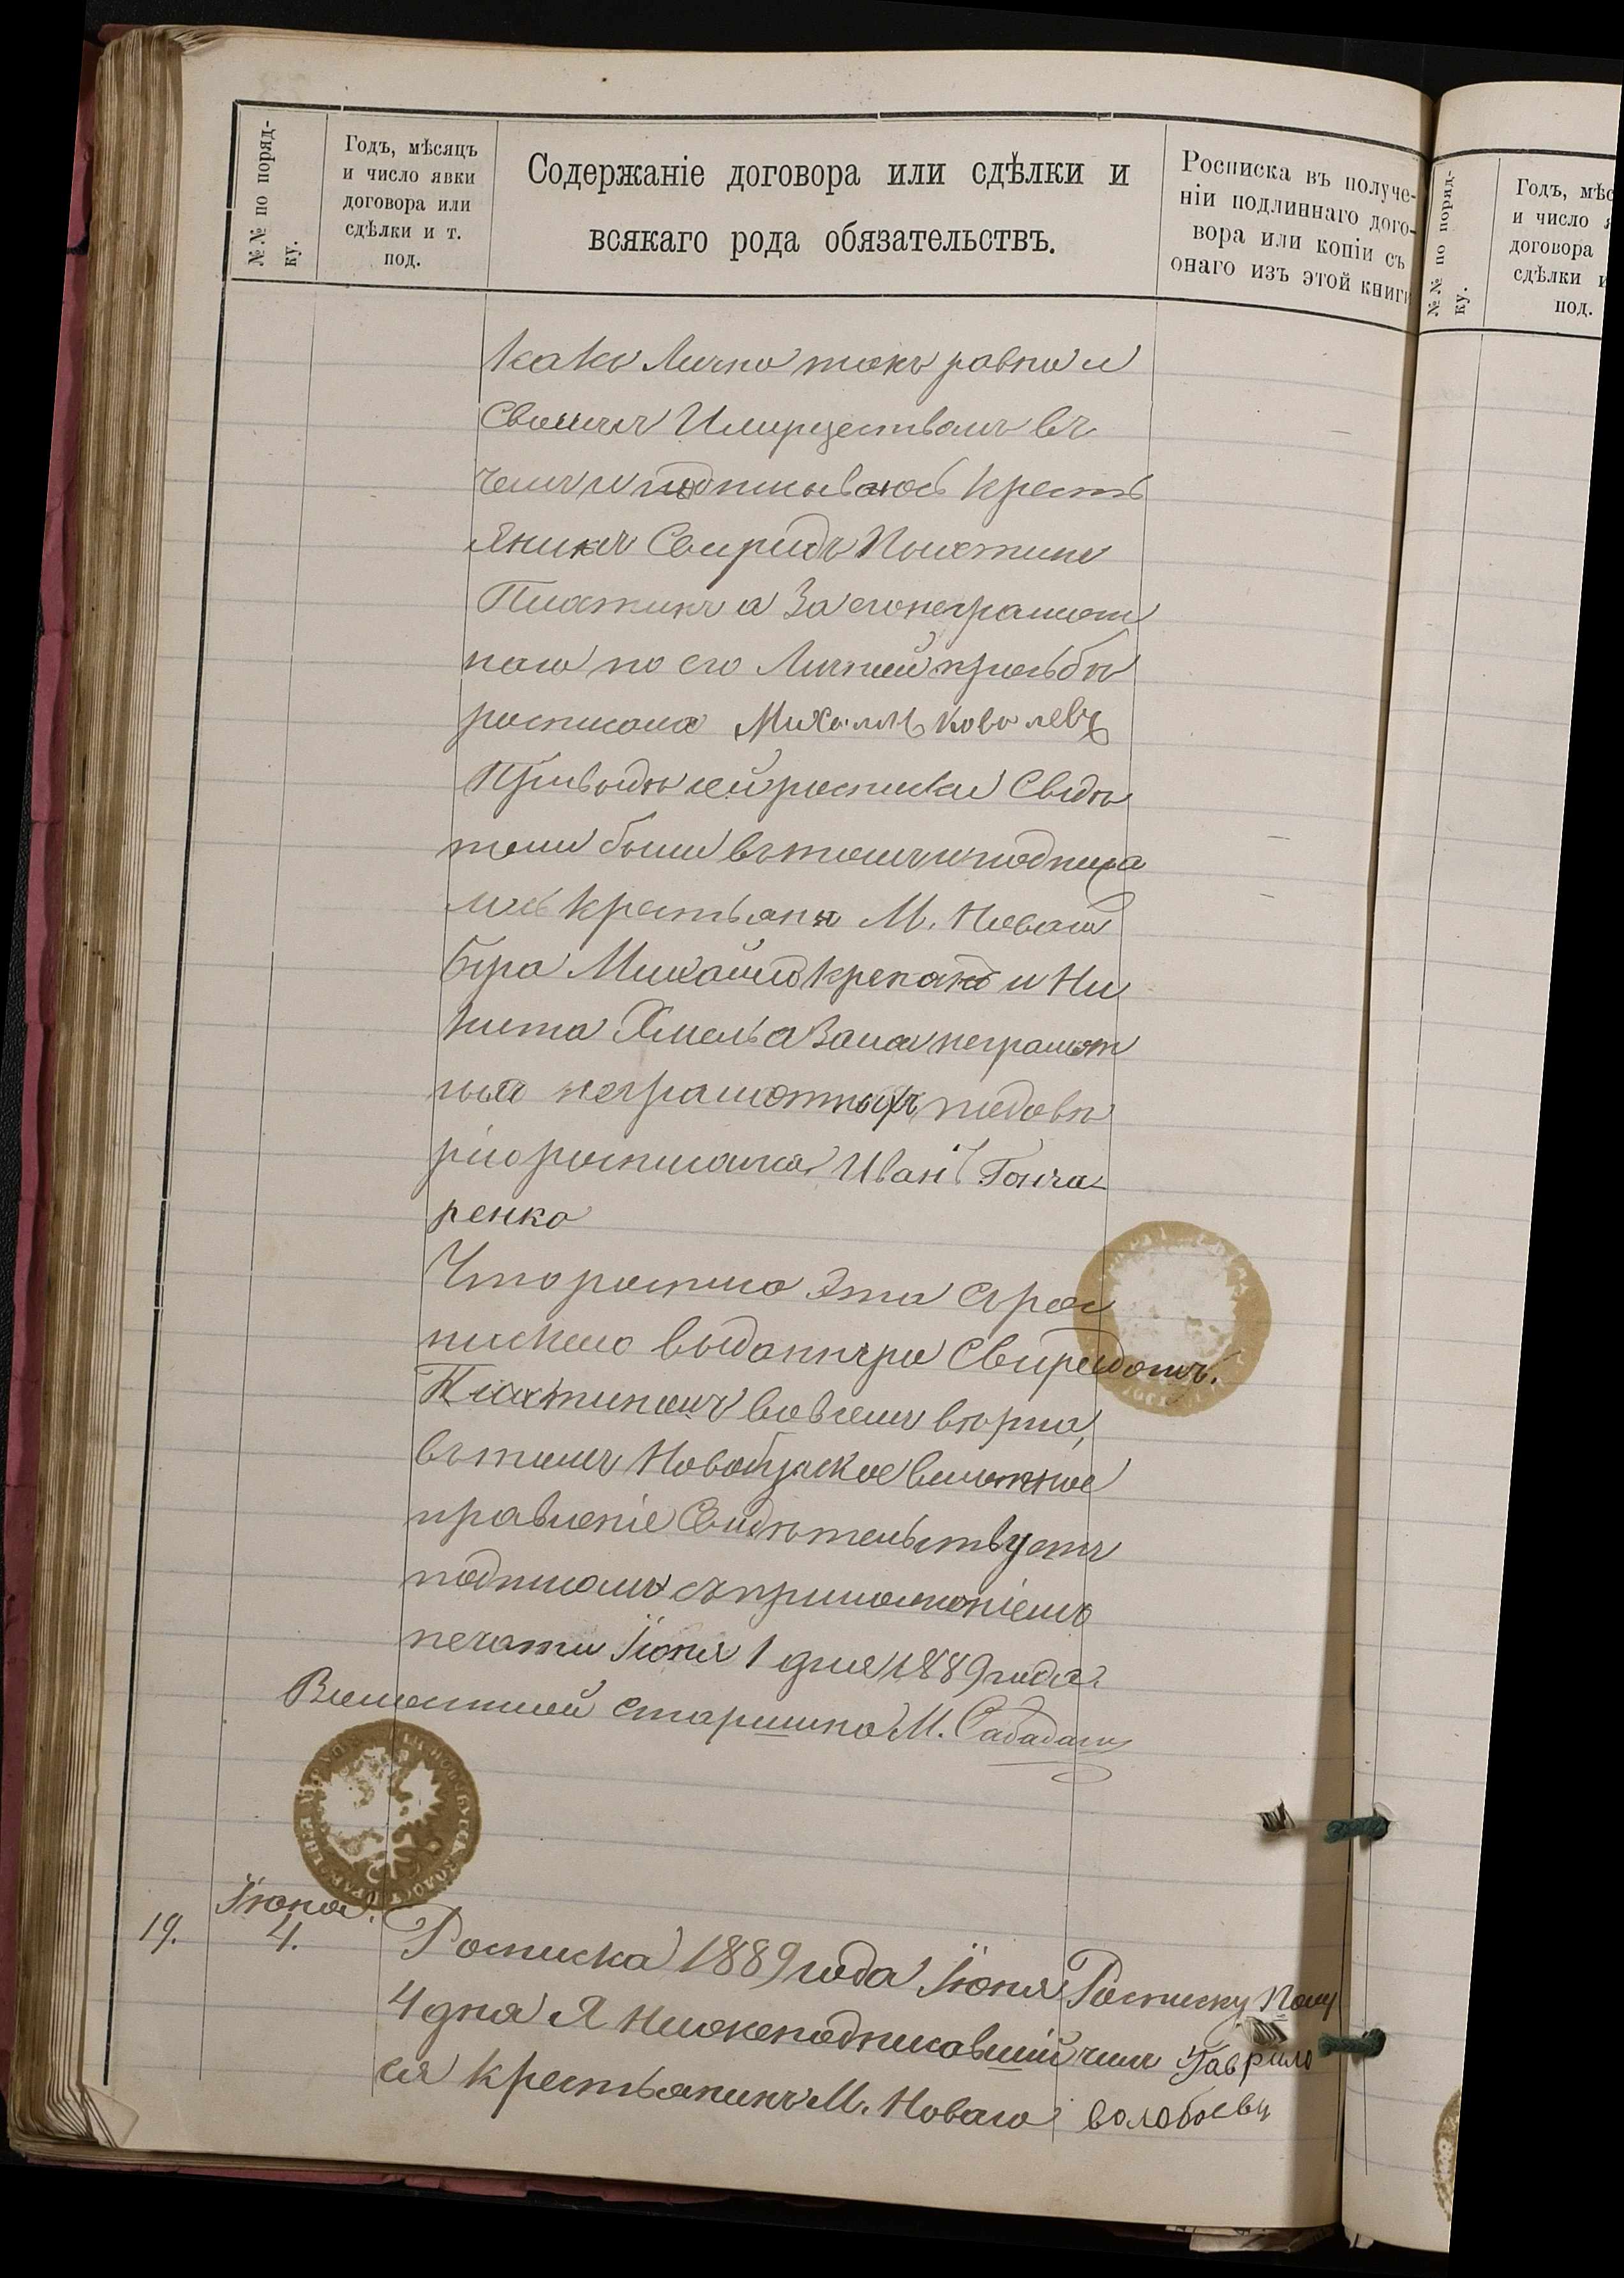 №№ по поряд-
ку.
Годъ, мѣсяцъ
и число явки
договора или
сдѣлки и т.
под.
Содержаніе договора или сдѣлки и
всякаго рода обязательствъ.
Росписка въ получе-
ніи подлиннаго дого-
вора или копіи съ
онаго изъ этой книги
какъ Лично такъ равно и
Своимъ Имуществомъ въ
чемъ и подписываюсь кресть
Янинъ Свиридъ
Пластунъ а За его неграмот
наго по его Личной прозьбѣ
росписался Михаилъ Ковалевъ
При выдѣ сей росписки Свидѣ
тели были въ томъ и подписа
лись крестьяне М. Новаго
Буга Михайло крекотъ и Ни
кита Хмель а За нихъ неграмот
ныхъ неграмотныхъ по довѣ
рію росписался Иванъ Гонча
ренко
Что росписка Эта Съ рос
пискою выданную Свиридомъ.
Пластуномъ во всемъ вѣрна,
въ томъ Новобугское волостное
правленіе Свидѣтельствуетъ
подписомъ съ приложеніемъ
печати Іюня 1 дня 1889 года
Волостной старшина М. Сабадаш
19.
Іюня
4.
Росписка 1889 года Іюня
4 дня Я Нижеподписавшій
ся крестьянинъ М. Новаго
Росписку Полу
чил Гаврило
волобоевъ
№№ по поряд-
ку.
Годъ, мѣс
и число я
договора
сдѣлки и
под.